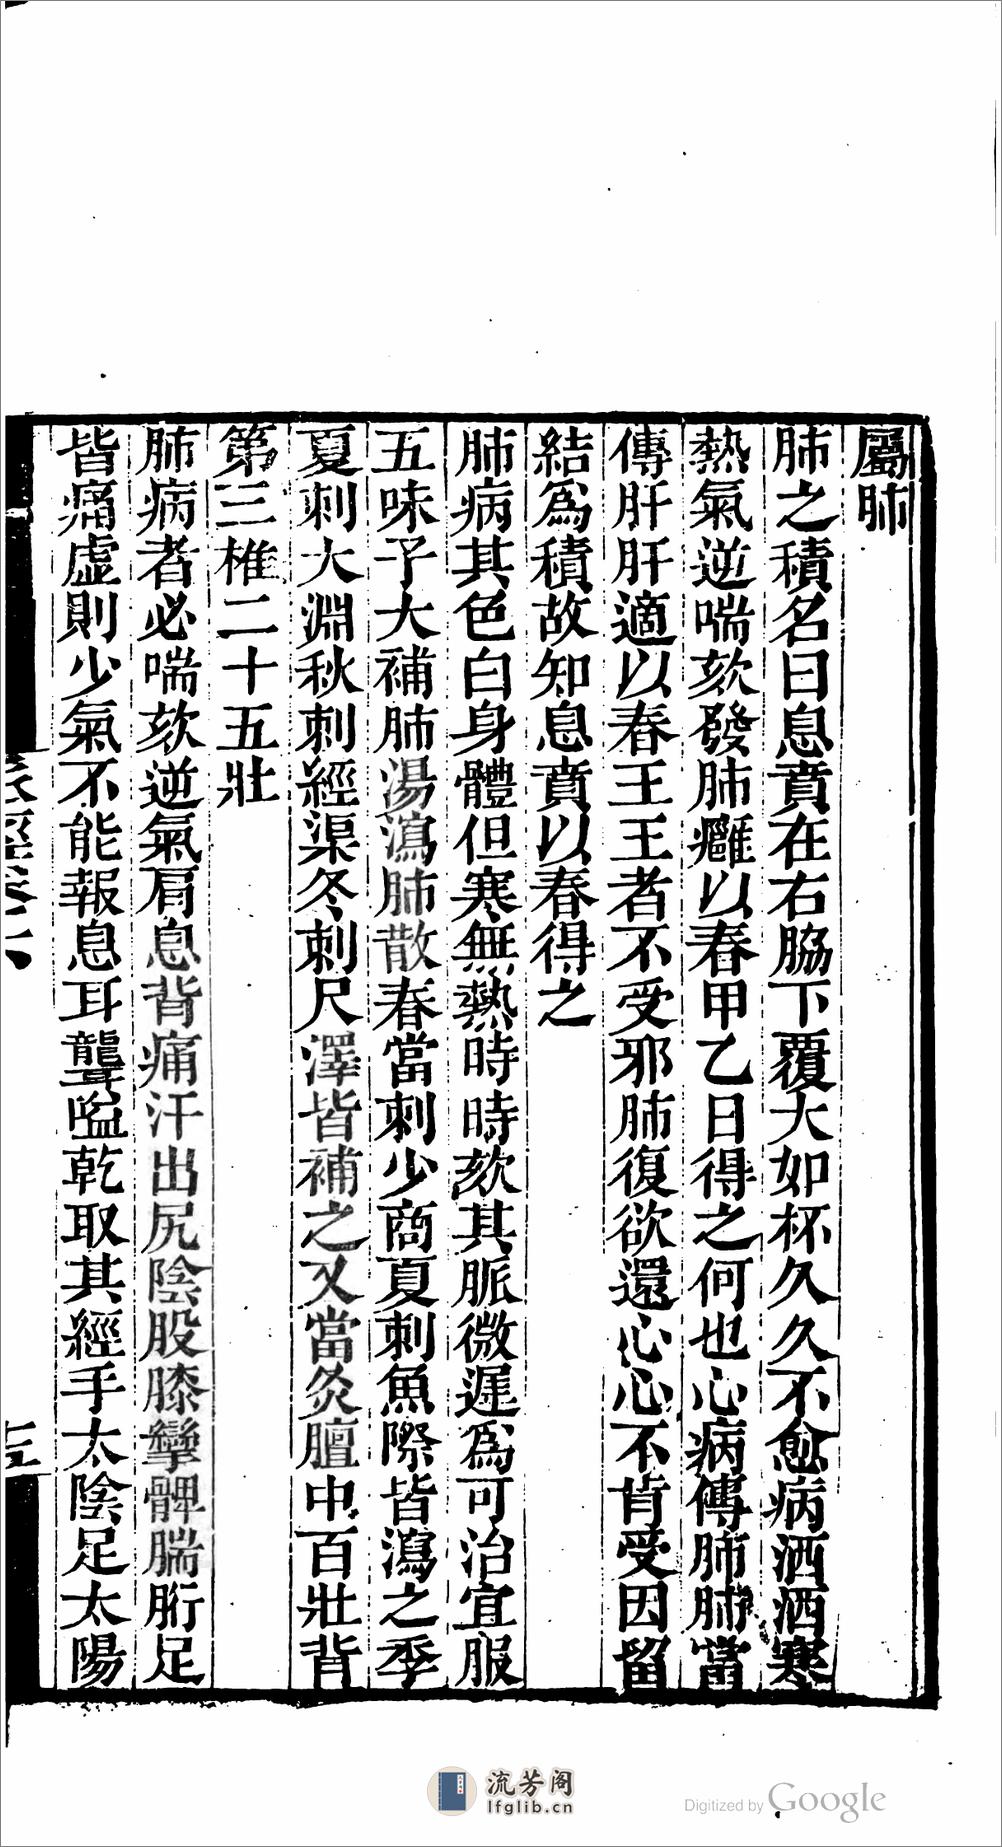 屬肺
肺之積名曰息賁在右脇下覆大如杯久久不愈病洒洒寒
熱氣逆喘欬發肺癰以春甲乙日得之何也心病傳肺肺當
傳肝肝適以春王王者不受邪肺復欲還心心不肯受因留
結爲積故知息賁以春得之
肺病其色白身體但寒無熱時時欬其脈微遲爲可治宜服
五味子大補肺湯瀉肺散春當刺少商夏刺魚際皆瀉之季
夏刺大淵秋刺經渠冬刺尺澤皆補之又當灸膻中百壯背
第三椎二十五壯
肺病者必喘欬逆氣肩息背痛汗出尻陰股膝攣髀腨胻足
皆痛虛則少氣不能報息耳聾嗌乾取其經手太陰足太陽
脈經卷六
十五
流芳阁
lfglib.cn
Digitized by Google